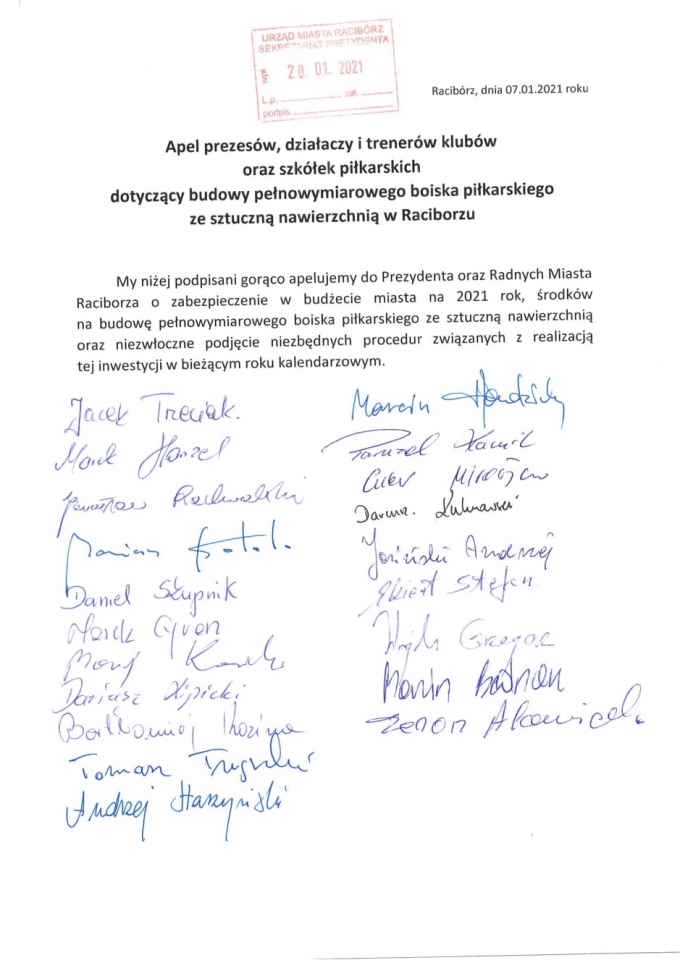 URZĄD MIASTA RACIBÓRZ
SEKRETARIAT PREZYDENTA
20. 01. 2021
L.p. zał.
podpis
Racibórz, dnia 07.01.2021 roku
Apel prezesów, działaczy i trenerów klubów
oraz szkółek piłkarskich
dotyczący budowy pełnowymiarowego boiska piłkarskiego
ze sztuczną nawierzchnią w Raciborzu
My niżej podpisani gorąco apelujemy do Prezydenta oraz Radnych Miasta
Raciborza o zabezpieczenie w budżecie miasta na 2021 rok, środków
na budowę pełnowymiarowego boiska piłkarskiego ze sztuczną nawierzchnią
oraz niezwłoczne podjęcie niezbędnych procedur związanych z realizacją
tej inwestycji w bieżącym roku kalendarzowym.
Jacek Treciak.
Marek Hanzel
Marian
Daniel Słupnik
Marek Cyran
Dariusz Lipicki
Bartłomiej Kozina
Tomasz
Andrzej Starzyński
Marcin
Kamil
Dariusz
Andrzej
Stefan
Grzegorz
Marcin
Zenon